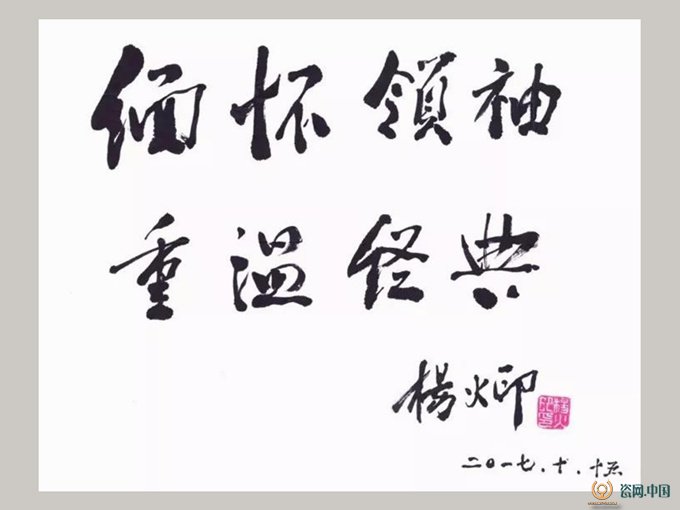 缅怀领袖
重温经典
楊火印
二〇一七.十.十五
瓷网.中国